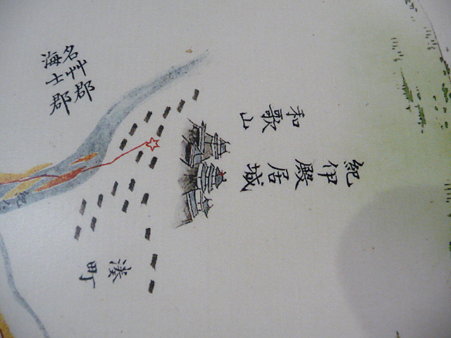 紀伊殿居城
和歌山
名艸郡
海士郡
湊町